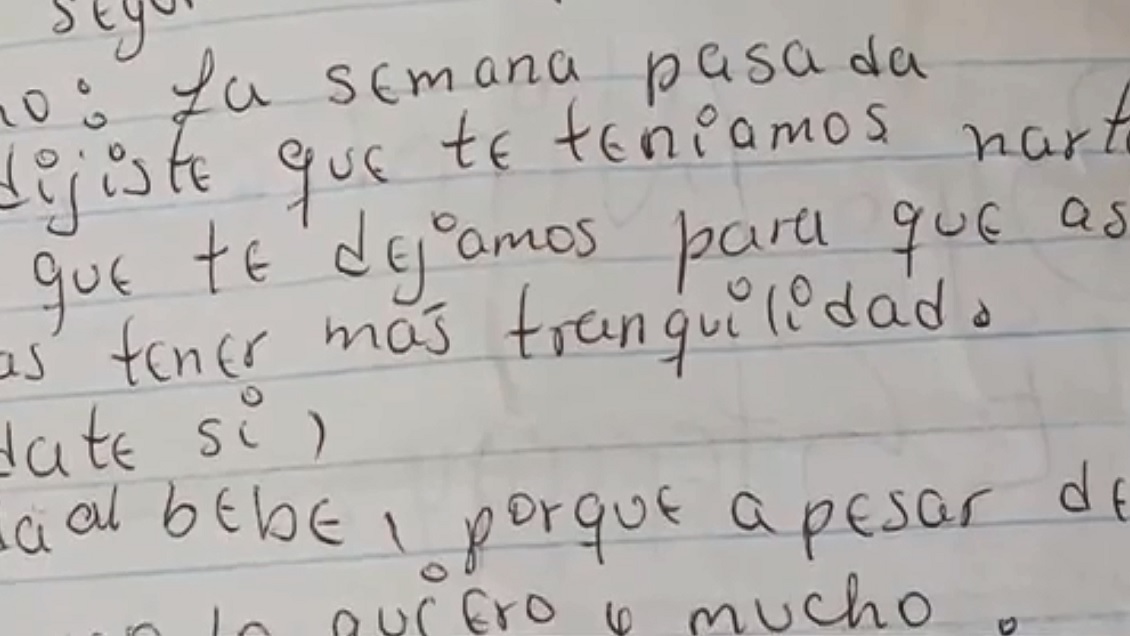 La semana pasada
dijiste que te teniamos
que te dejamos para que
tener más tranquilidad.
si,
al bebe, porque a pesar de
quiero mucho.